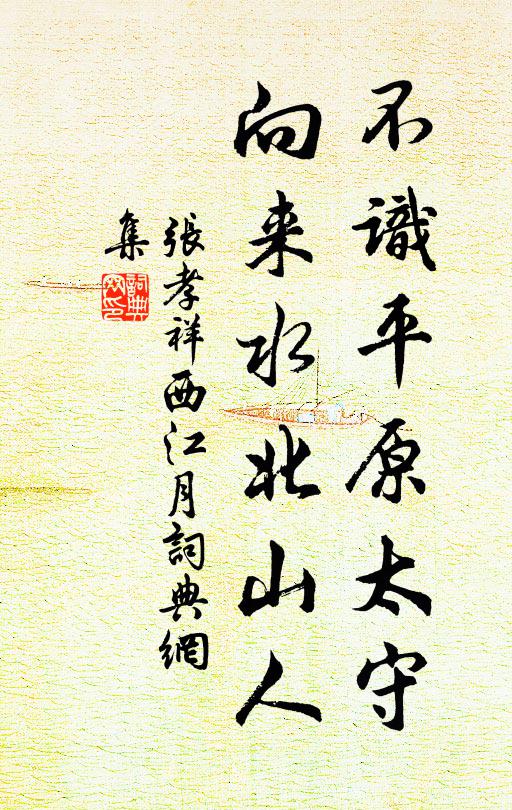 不識平原太守
向来水北山人
張孝祥西江月詞典網
集
詞典
網印